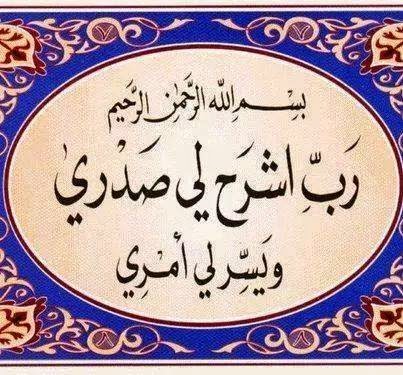 بِسْمِ اللهِ الرَّحْمٰنِ الرَّحِيمِ
رَبِّ اشْرَحْ لِي صَدْرِي
وَيَسِّرْ لِي أَمْرِي